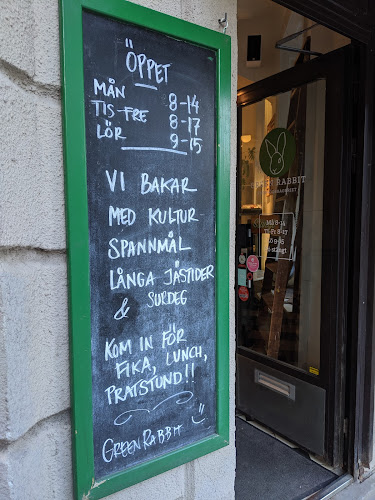 ÖPPET
MÅN 8-14
TIS-FRE 8-17
LÖR 9-15
VI BAKAR
MED KULTUR-
SPANNMÅL
LÅNGA JÄSTIDER
& SURDEG
KOM IN FÖR
FIKA, LUNCH,
PRATSTUND!!
GREEN RABBIT
RABBIT